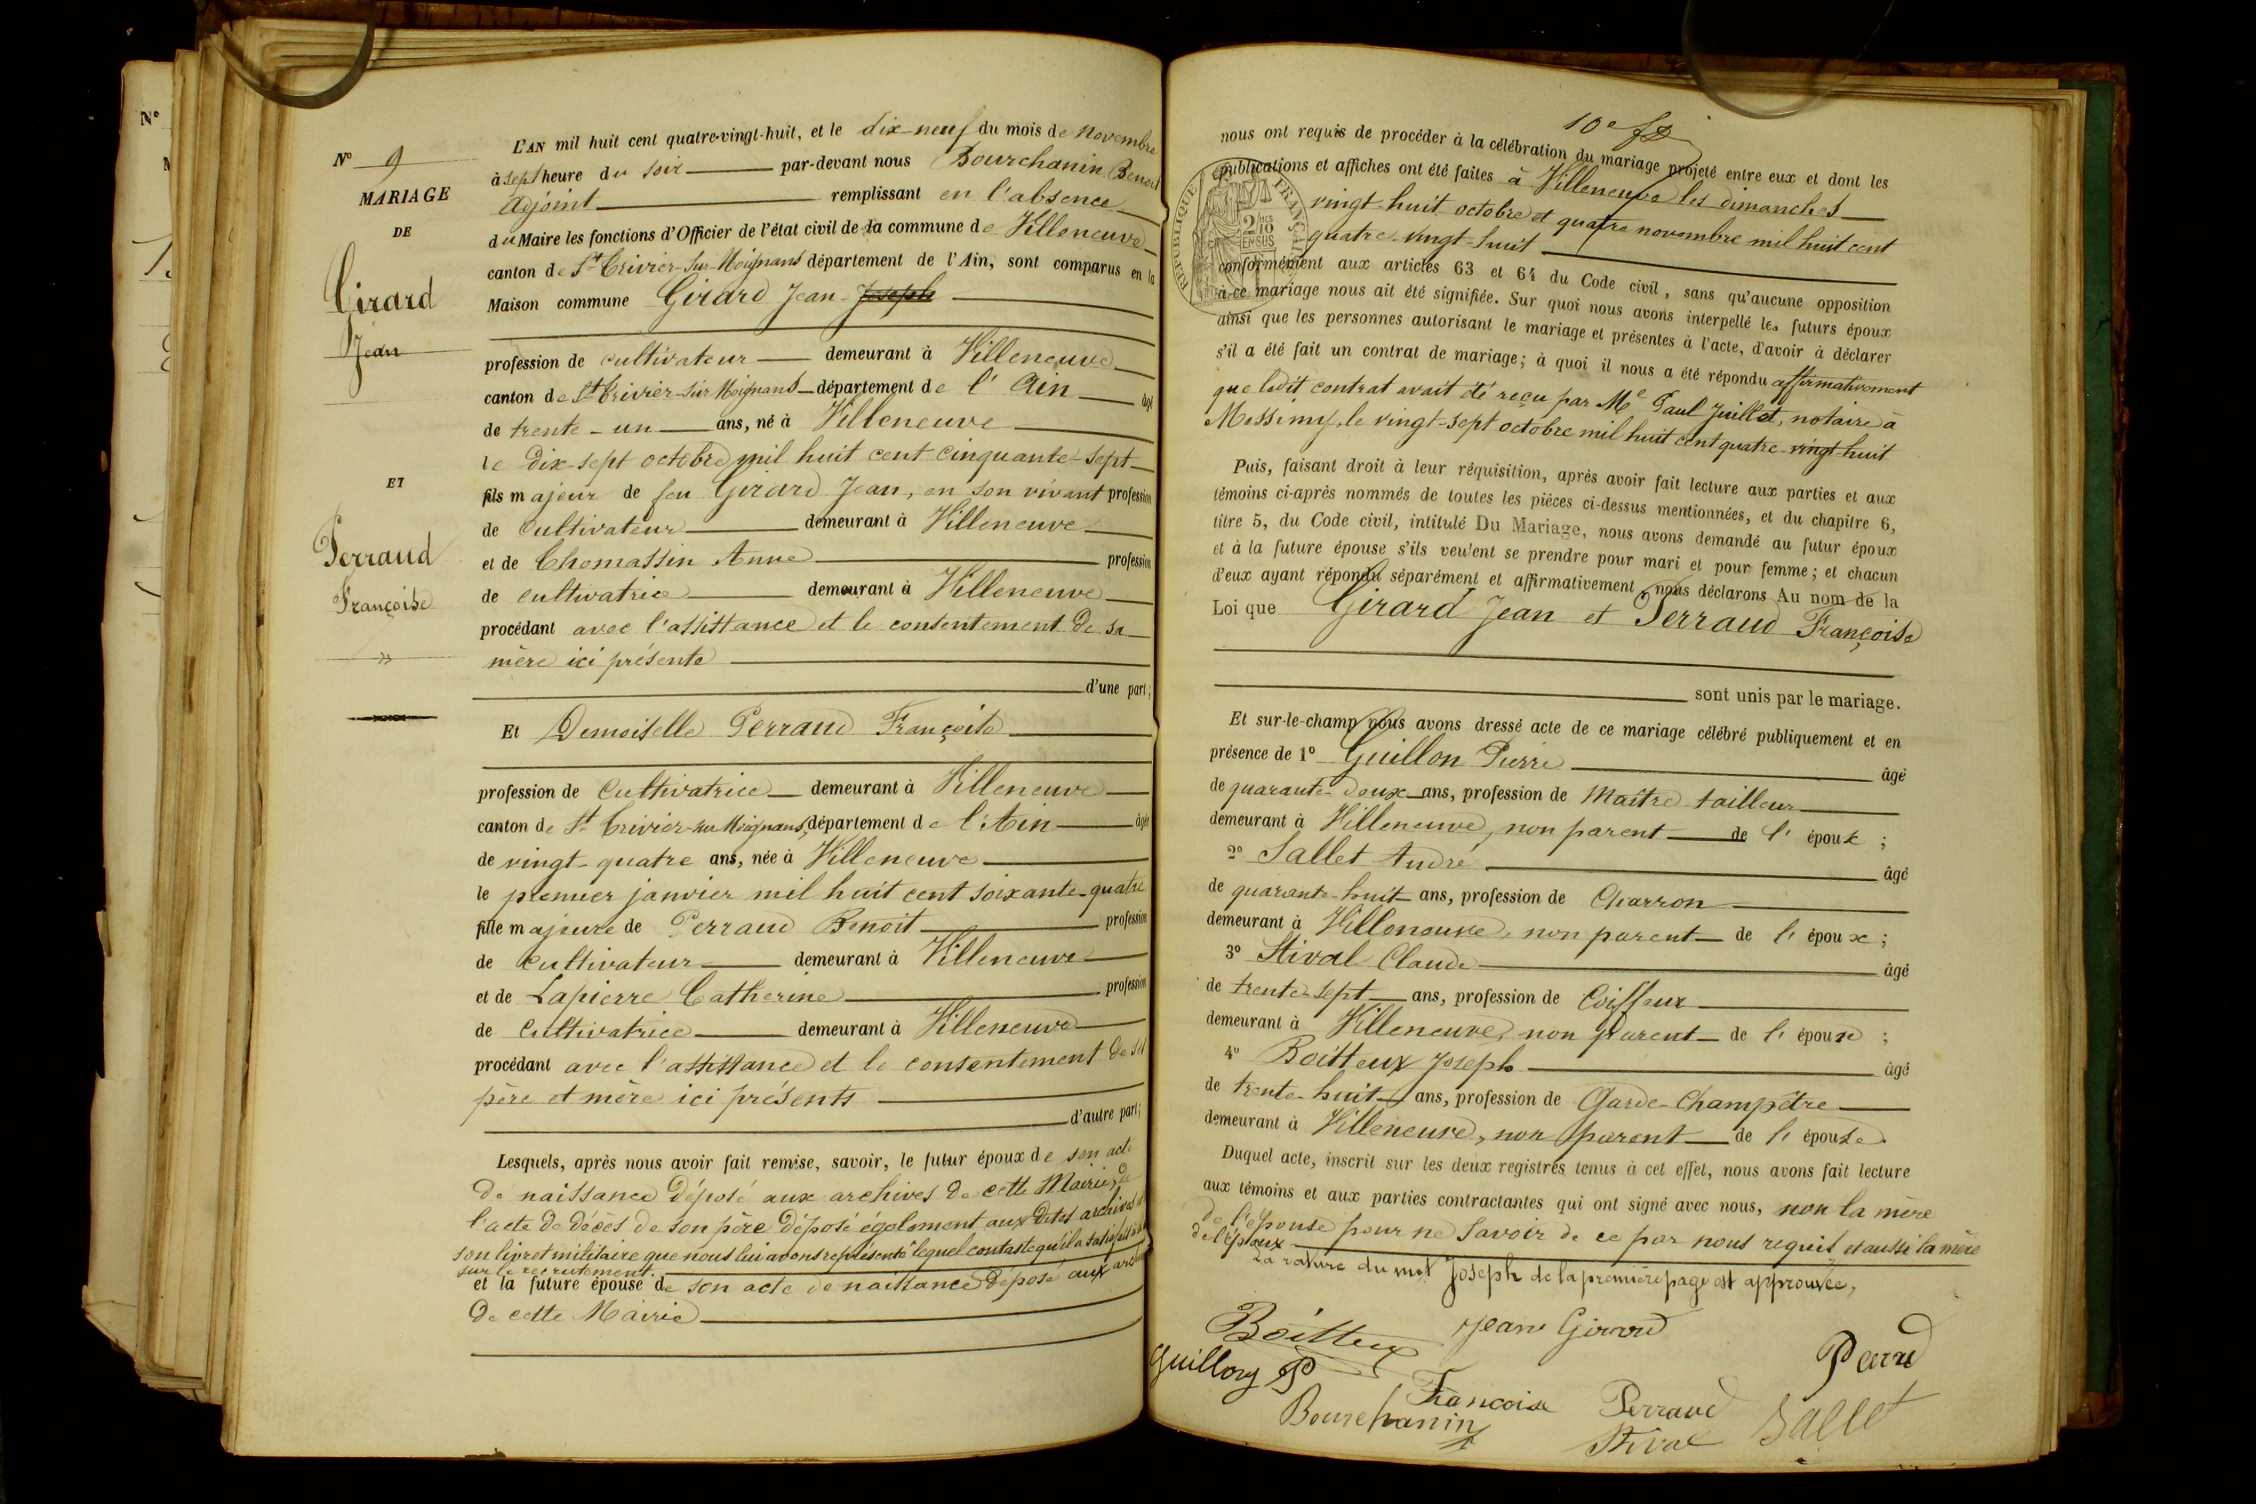 N°
N° 9
MARIAGE
DE
Girard
Jean
ET
Perraud
Françoise
»
L'AN mil huit cent quatre-vingt-huit, et le dix-neuf du mois de novembre
à sept heure du soir par-devant nous Bourchanin Benoit
adjoint remplissant en l'absence
du Maire les fonctions d'Officier de l'état civil de la commune de Villeneuve
canton de St Trivier-sur-Moignans département de l'Ain, sont comparus en la
Maison commune Girard Jean Joseph
profession de cultivateur demeurant à Villeneuve
canton de St Trivier-sur-Moignans département de l'Ain âgé
de trente-un ans, né à Villeneuve
le dix-sept octobre mil huit cent cinquante-sept
fils majeur de feu Girard Jean, en son vivant profession
de cultivateur demeurant à Villeneuve
et de Thomassin Anne profession
de cultivatrice demeurant à Villeneuve
procédant avec l'assistance et le consentement de sa
mère ici présente
d'une part;
Et Demoiselle Perraud Françoise
profession de Cultivatrice demeurant à Villeneuve
canton de St Trivier-sur-Moignans, département de l'Ain âgée
de vingt-quatre ans, née à Villeneuve
le premier janvier mil huit cent soixante-quatre
fille majeure de Perraud Benoit profession
de cultivateur demeurant à Villeneuve
et de Lapierre Catherine profession
de Cultivatrice demeurant à Villeneuve
procédant avec l'assistance et le consentement de ses
père et mère ici présents
d'autre part;
Lesquels, après nous avoir fait remise, savoir, le futur époux de son acte
de naissance déposé aux archives de cette Mairie, de
l'acte de décès de son père déposé également aux dites archives et
son livret militaire que nous lui avons représenté lequel contaste qu'il a satisfait
sur le recrutement.
et la future épouse de son acte de naissance déposé aux archives
de cette Mairie
10e
nous ont requis de procéder à la célébration du mariage projeté entre eux et dont les
publications et affiches ont été faites à Villeneuve les dimanches
vingt-huit octobre et quatre novembre mil huit cent
quatre-vingt-huit
RÉPUBLIQUE FRANÇAISE
2/10 EN SUS
conformément aux articles 63 et 64 du Code civil, sans qu'aucune opposition
à ce mariage nous ait été signifiée. Sur quoi nous avons interpellé les futurs époux
ainsi que les personnes autorisant le mariage et présentes à l'acte, d'avoir à déclarer
s'il a été fait un contrat de mariage; à quoi il nous a été répondu affirmativement
que ledit contrat avait été reçu par Me Paul Juillet, notaire à
Messimy, le vingt-sept octobre mil huit cent quatre-vingt-huit
Puis, faisant droit à leur réquisition, après avoir fait lecture aux parties et aux
témoins ci-après nommés de toutes les pièces ci-dessus mentionnées, et du chapitre 6,
titre 5, du Code civil, intitulé Du Mariage, nous avons demandé au futur époux
et à la future épouse s'ils veulent se prendre pour mari et pour femme; et chacun
d'eux ayant répondu séparément et affirmativement, nous déclarons Au nom de la
Loi que Girard Jean et Perraud Françoise
sont unis par le mariage.
Et sur-le-champ nous avons dressé acte de ce mariage célébré publiquement et en
présence de 1° Guillon Pierre âgé
de quarante-deux ans, profession de Maître tailleur
demeurant à Villeneuve, non parent de l'époux;
2° Sallet André âgé
de quarante-huit ans, profession de Charron
demeurant à Villeneuve, non parent de l'époux;
3° Stival Claude âgé
de trente-sept ans, profession de Coiffeur
demeurant à Villeneuve, non parent de l'épouse;
4° Boitteux Joseph âgé
de trente-huit ans, profession de Garde-Champêtre
demeurant à Villeneuve, non parent de l'épouse.
Duquel acte, inscrit sur les deux registres tenus à cet effet, nous avons fait lecture
aux témoins et aux parties contractantes qui ont signé avec nous, non la mère
de l'épouse pour ne savoir de ce par nous requis et aussi la mère
de l'époux
La rature du mot Joseph de la première page est approuvée,
Boitteux Jean Girard
Guillon P Perrd
Françoise Perraud
Bourchanin Stival Sallet